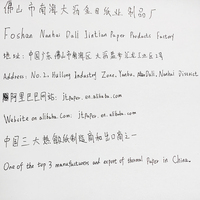 佛山市南海大沥金田纸业制品厂
Foshan Nanhai Dali Jintian Paper Products Factory
地址：中国广东佛山市南海区大沥
Address: No. 2, Hailong Industry Zone, Yanbu, Dali, Nanhai District
阿里巴巴网站：jtpaper.en.alibaba.com
Website en.alibaba.com: jtpaper.en.alibaba.com
中国三大热敏纸制造商和出口商之一
One of the top 3 manufacturers and export of thermal Paper in China.